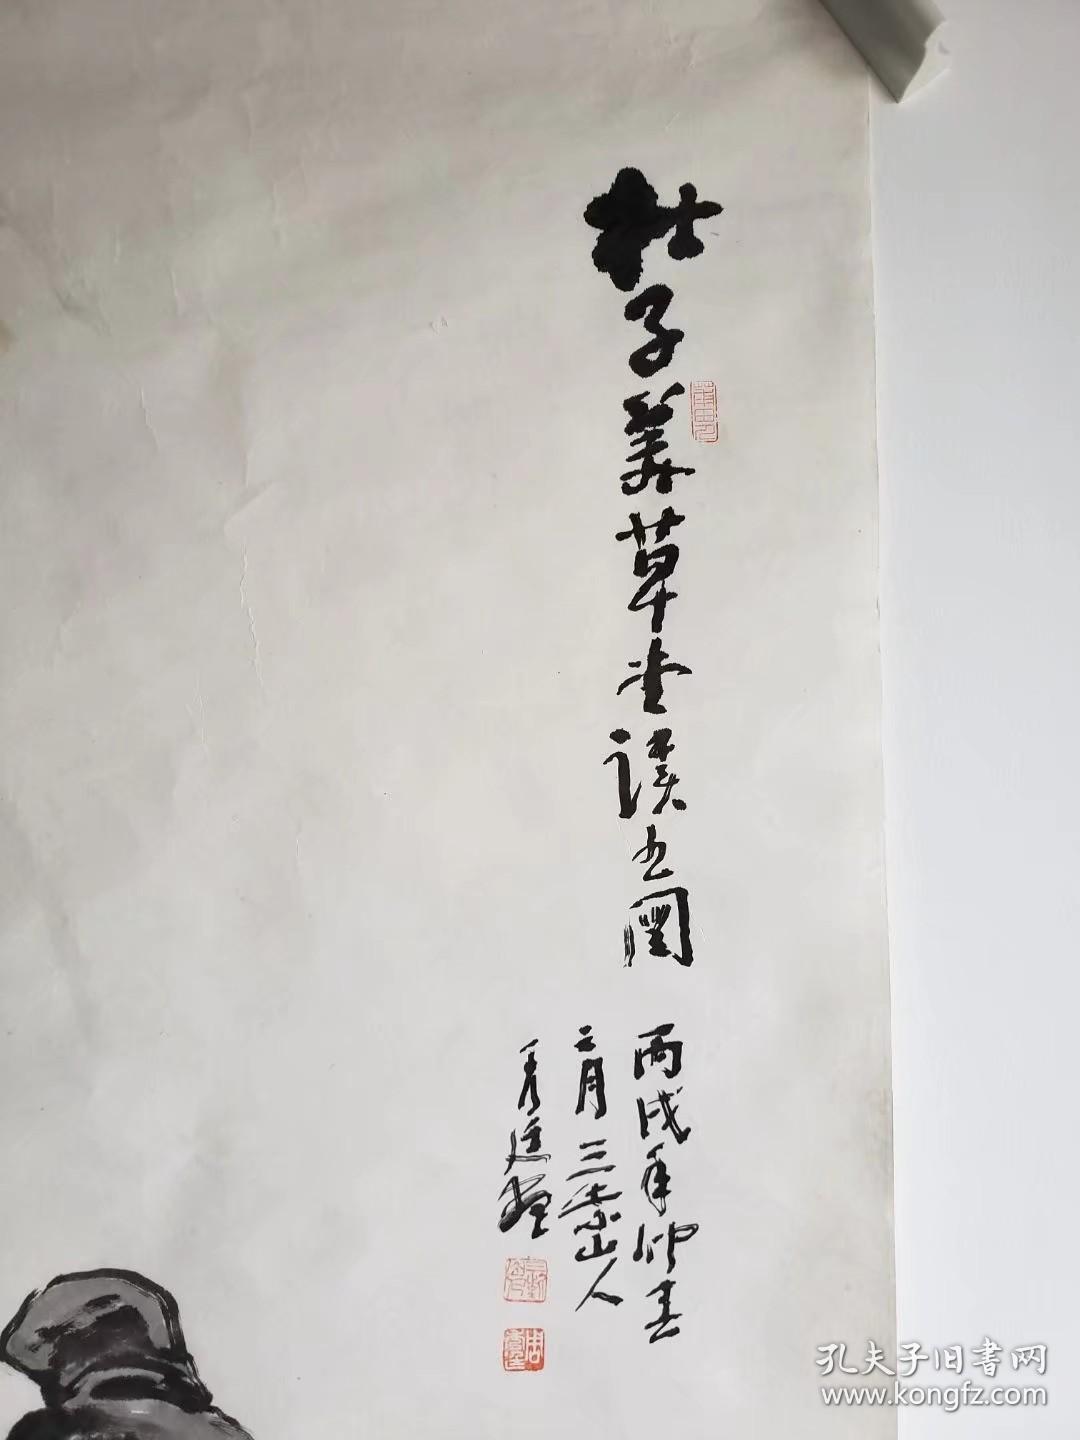 杜子美草堂读书图
丙戌年仲春
二月三紫山人
秀廷画
孔夫子旧書网
www.kongfz.com